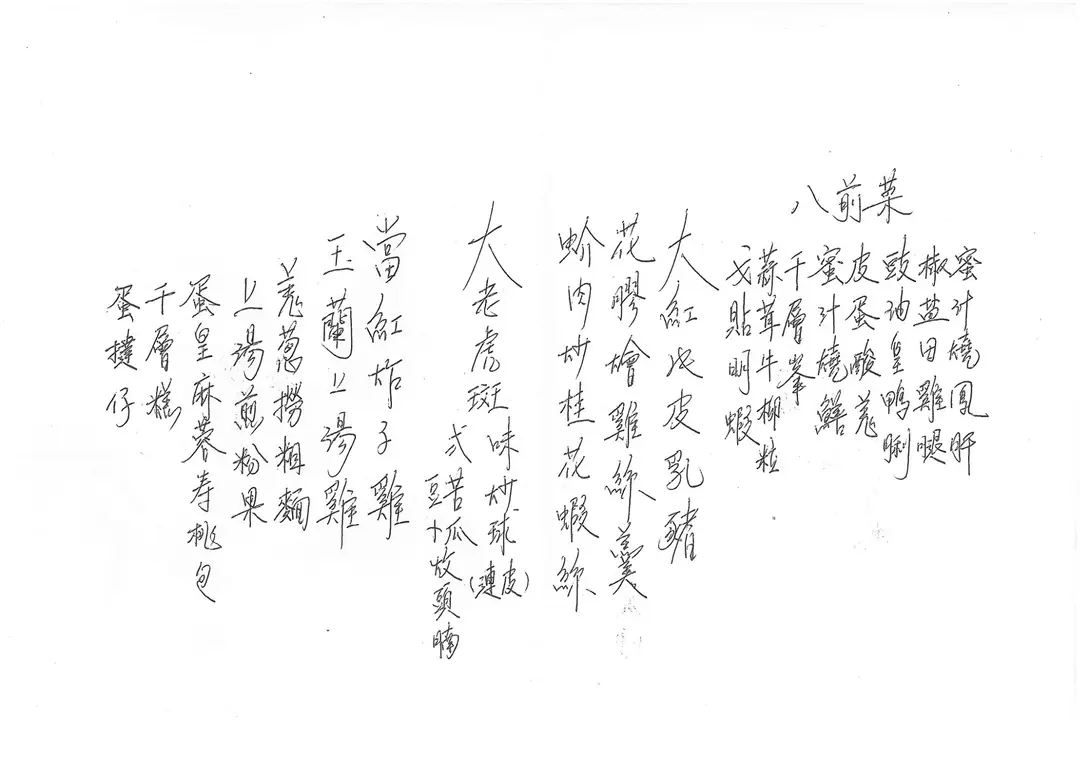 八前菜
蜜汁燒鳳肝
椒盐田雞腿
豉油皇鴨脷
皮蛋酸羌
蜜汁燒鱔
千層峯
蒜茸牛柳粒
戈貼明蝦
大紅比皮乳豬
花膠燴雞絲羹
蚧肉炒桂花蝦絲
大老虎斑弍味
炒球(連皮)
豆卜苦瓜炆頭腩
當紅炸子雞
玉蘭上湯雞
羌葱撈粗麵
上湯煎粉果
蛋皇麻蓉寿桃包
千層糕
蛋撻仔